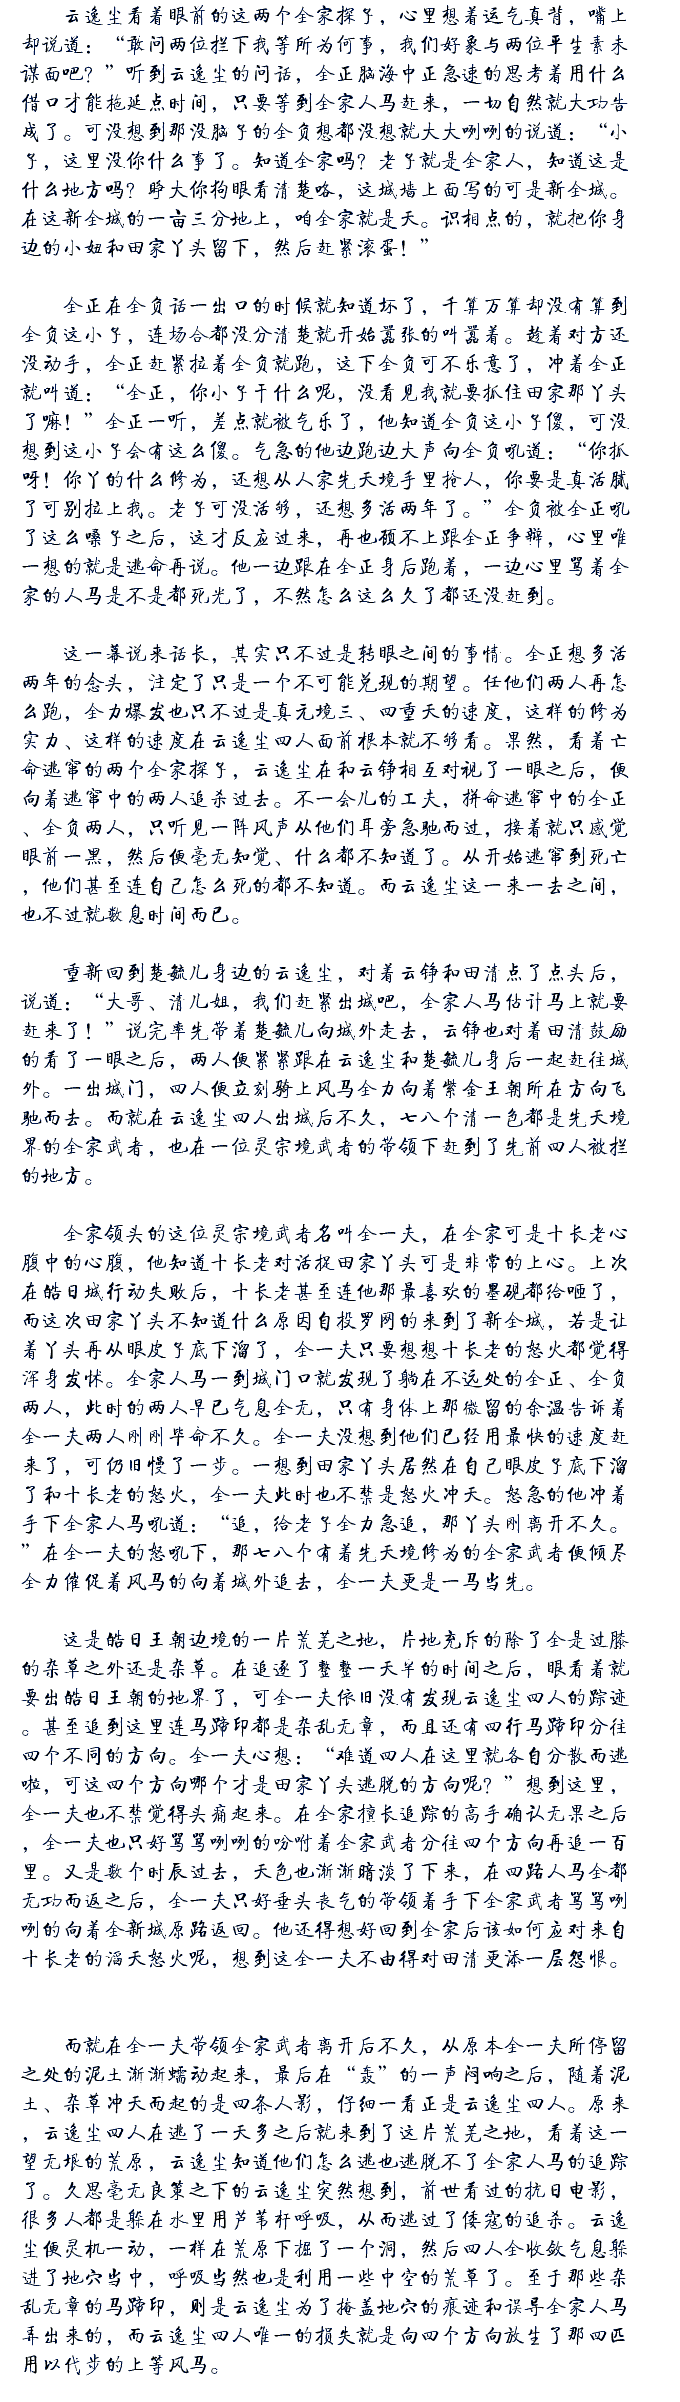 云逸尘看着眼前的这两个全家探子，心里想着运气真背，嘴上
却说道：“敢问两位拦下我等所为何事，我们好象与两位平生素未
谋面吧？”听到云逸尘的问话，全正脑海中正急速的思考着用什么
借口才能拖延点时间，只要等到全家人马赶来，一切自然就大功告
成了。可没想到那没脑子的全负想都没想就大大咧咧的说道：“小
子，这里没你什么事了。知道全家吗？老子就是全家人，知道这是
什么地方吗？睁大你狗眼看清楚咯，这城墙上面写的可是新全城。
在这新全城的一亩三分地上，咱全家就是天。识相点的，就把你身
边的小妞和田家丫头留下，然后赶紧滚蛋！”
全正在全负话一出口的时候就知道坏了，千算万算却没有算到
全负这小子，连场合都没分清楚就开始嚣张的叫嚣着。趁着对方还
没动手，全正赶紧拉着全负就跑，这下全负可不乐意了，冲着全正
就叫道：“全正，你小子干什么呢，没看见我就要抓住田家那丫头
了嘛！”全正一听，差点就被气乐了，他知道全负这小子傻，可没
想到这小子会有这么傻。气急的他边跑边大声向全负吼道：“你抓
呀！你丫的什么修为，还想从人家先天境手里抢人，你要是真活腻
了可别拉上我。老子可没活够，还想多活两年了。”全负被全正吼
了这么嗓子之后，这才反应过来，再也顾不上跟全正争辩，心里唯
一想的就是逃命再说。他一边跟在全正身后跑着，一边心里骂着全
家的人马是不是都死光了，不然怎么这么久了都还没赶到。
这一幕说来话长，其实只不过是转眼之间的事情。全正想多活
两年的念头，注定了只是一个不可能兑现的期望。任他们两人再怎
么跑，全力爆发也只不过是真元境三、四重天的速度，这样的修为
实力、这样的速度在云逸尘四人面前根本就不够看。果然，看着亡
命逃窜的两个全家探子，云逸尘在和云铮相互对视了一眼之后，便
向着逃窜中的两人追杀过去。不一会儿的工夫，拼命逃窜中的全正
、全负两人，只听见一阵风声从他们耳旁急驰而过，接着就只感觉
眼前一黑，然后便毫无知觉、什么都不知道了。从开始逃窜到死亡
，他们甚至连自己怎么死的都不知道。而云逸尘这一来一去之间，
也不过就数息时间而已。
重新回到楚毓儿身边的云逸尘，对着云铮和田清点了点头后，
说道：“大哥、清儿姐，我们赶紧出城吧，全家人马估计马上就要
赶来了！”说完率先带着楚毓儿向城外走去，云铮也对着田清鼓励
的看了一眼之后，两人便紧紧跟在云逸尘和楚毓儿身后一起赶往城
外。一出城门，四人便立刻骑上风马全力向着紫金王朝所在方向飞
驰而去。而就在云逸尘四人出城后不久，七八个清一色都是先天境
界的全家武者，也在一位灵宗境武者的带领下赶到了先前四人被拦
的地方。
全家领头的这位灵宗境武者名叫全一夫，在全家可是十长老心
腹中的心腹，他知道十长老对活捉田家丫头可是非常的上心。上次
在皓日城行动失败后，十长老甚至连他那最喜欢的墨砚都给咂了，
而这次田家丫头不知道什么原因自投罗网的来到了新全城，若是让
着丫头再从眼皮子底下溜了，全一夫只要想想十长老的怒火都觉得
浑身发怵。全家人马一到城门口就发现了躺在不远处的全正、全负
两人，此时的两人早已气息全无，只有身体上那微留的余温告诉着
全一夫两人刚刚毕命不久。全一夫没想到他们已经用最快的速度赶
来了，可仍旧慢了一步。一想到田家丫头居然在自己眼皮子底下溜
了和十长老的怒火，全一夫此时也不禁是怒火冲天。怒急的他冲着
手下全家人马吼道：“追，给老子全力急追，那丫头刚离开不久。
”在全一夫的怒吼下，那七八个有着先天境修为的全家武者便倾尽
全力催促着风马的向着城外追去，全一夫更是一马当先。
这是皓日王朝边境的一片荒芜之地，片地充斥的除了全是过膝
的杂草之外还是杂草。在追逐了整整一天半的时间之后，眼看着就
要出皓日王朝的地界了，可全一夫依旧没有发现云逸尘四人的踪迹
。甚至追到这里连马蹄印都是杂乱无章，而且还有四行马蹄印分往
四个不同的方向。全一夫心想：“难道四人在这里就各自分散而逃
啦，可这四个方向哪个才是田家丫头逃脱的方向呢？”想到这里，
全一夫也不禁觉得头痛起来。在全家擅长追踪的高手确认无果之后
，全一夫也只好骂骂咧咧的吩咐着全家武者分往四个方向再追一百
里。又是数个时辰过去，天色也渐渐暗淡了下来，在四路人马全都
无功而返之后，全一夫只好垂头丧气的带领着手下全家武者骂骂咧
咧的向着全新城原路返回。他还得想好回到全家后该如何应对来自
十长老的滔天怒火呢，想到这全一夫不由得对田清更添一层怨恨。
而就在全一夫带领全家武者离开后不久，从原本全一夫所停留
之处的泥土渐渐蠕动起来，最后在“轰”的一声闷响之后，随着泥
土、杂草冲天而起的是四条人影，仔细一看正是云逸尘四人。原来
，云逸尘四人在逃了一天多之后就来到了这片荒芜之地，看着这一
望无垠的荒原，云逸尘知道他们怎么逃也逃脱不了全家人马的追踪
了。久思毫无良策之下的云逸尘突然想到，前世看过的抗日电影，
很多人都是躲在水里用芦苇杆呼吸，从而逃过了倭寇的追杀。云逸
尘便灵机一动，一样在荒原下掘了一个洞，然后四人全收敛气息躲
进了地穴当中，呼吸当然也是利用一些中空的荒草了。至于那些杂
乱无章的马蹄印，则是云逸尘为了掩盖地穴的痕迹和误导全家人马
弄出来的，而云逸尘四人唯一的损失就是向四个方向放生了那四匹
用以代步的上等风马。